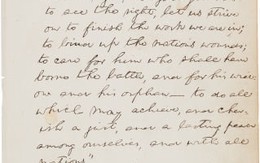 to see the right, let us strive
on to finish the work we are in;
to bind up the nation's wounds;
to care for him who shall have
borne the battle, and for his widow
and his orphan — to do all
which may achieve, and cher-
ish a just, and a lasting peace
among ourselves, and with all
nations"